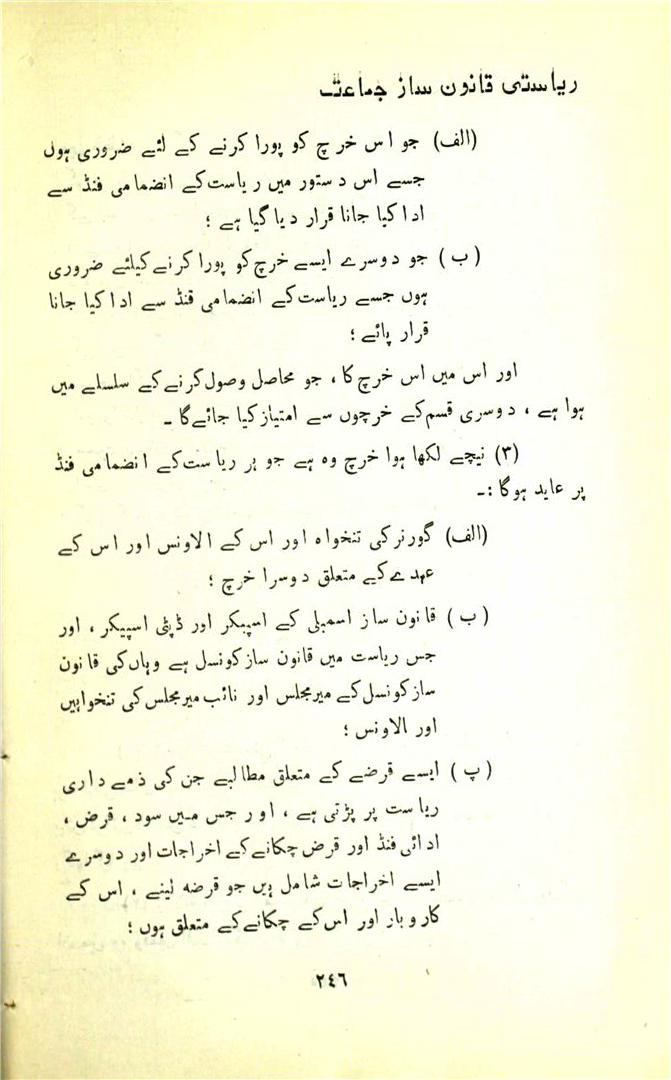 ریاستی قانون ساز جماعت
(الف) جو اس خرچ کو پورا کرنے کے لئے ضروری ہوں
جسے اس دستور میں ریاست کے انضمامی فنڈ سے
ادا کیا جانا قرار دیا گیا ہے ؛
(ب) جو دوسرے ایسے خرچ کو پورا کرنے کیلئے ضروری
ہوں جسے ریاست کے انضمامی فنڈ سے ادا کیا جانا
قرار پائے ؛
اور اس میں اس خرچ کا ، جو محاصل وصول کرنے کے سلسلے میں
ہوا ہے ، دوسری قسم کے خرچوں سے امتیاز کیا جائے گا ۔
(۳) نیچے لکھا ہوا خرچ وہ ہے جو ہر ریاست کے انضمامی فنڈ
پر عاید ہوگا :۔
(الف) گورنر کی تنخواہ اور اس کے الاونس اور اس کے
عہدے کے متعلق دوسرا خرچ ؛
(ب) قانون ساز اسمبلی کے اسپیکر اور ڈپٹی اسپیکر ، اور
جس ریاست میں قانون ساز کونسل ہے وہاں کی قانون
ساز کونسل کے میر مجلس اور نائب میر مجلس کی تنخواہیں
اور الاونس ؛
(پ) ایسے قرضے کے متعلق مطالبے جن کی ذمے داری
ریاست پر پڑتی ہے ، اور جس میں سود ، قرض ،
ادائی فنڈ اور قرض چکانے کے اخراجات اور دوسرے
ایسے اخراجات شامل ہیں جو قرضہ لینے ، اس کے
کاروبار اور اس کے چکانے کے متعلق ہوں ؛
۲٤٦